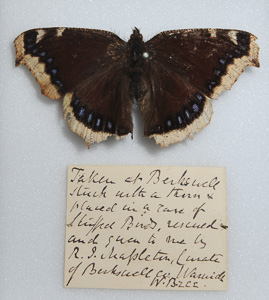 Taken at Berkswell
stuck with a thorn &
placed in a case of
Stuffed Birds, rescued
and given to me by
R. J. Shapleton, Curate
of Berkswell Co. Warwick
W. Bree